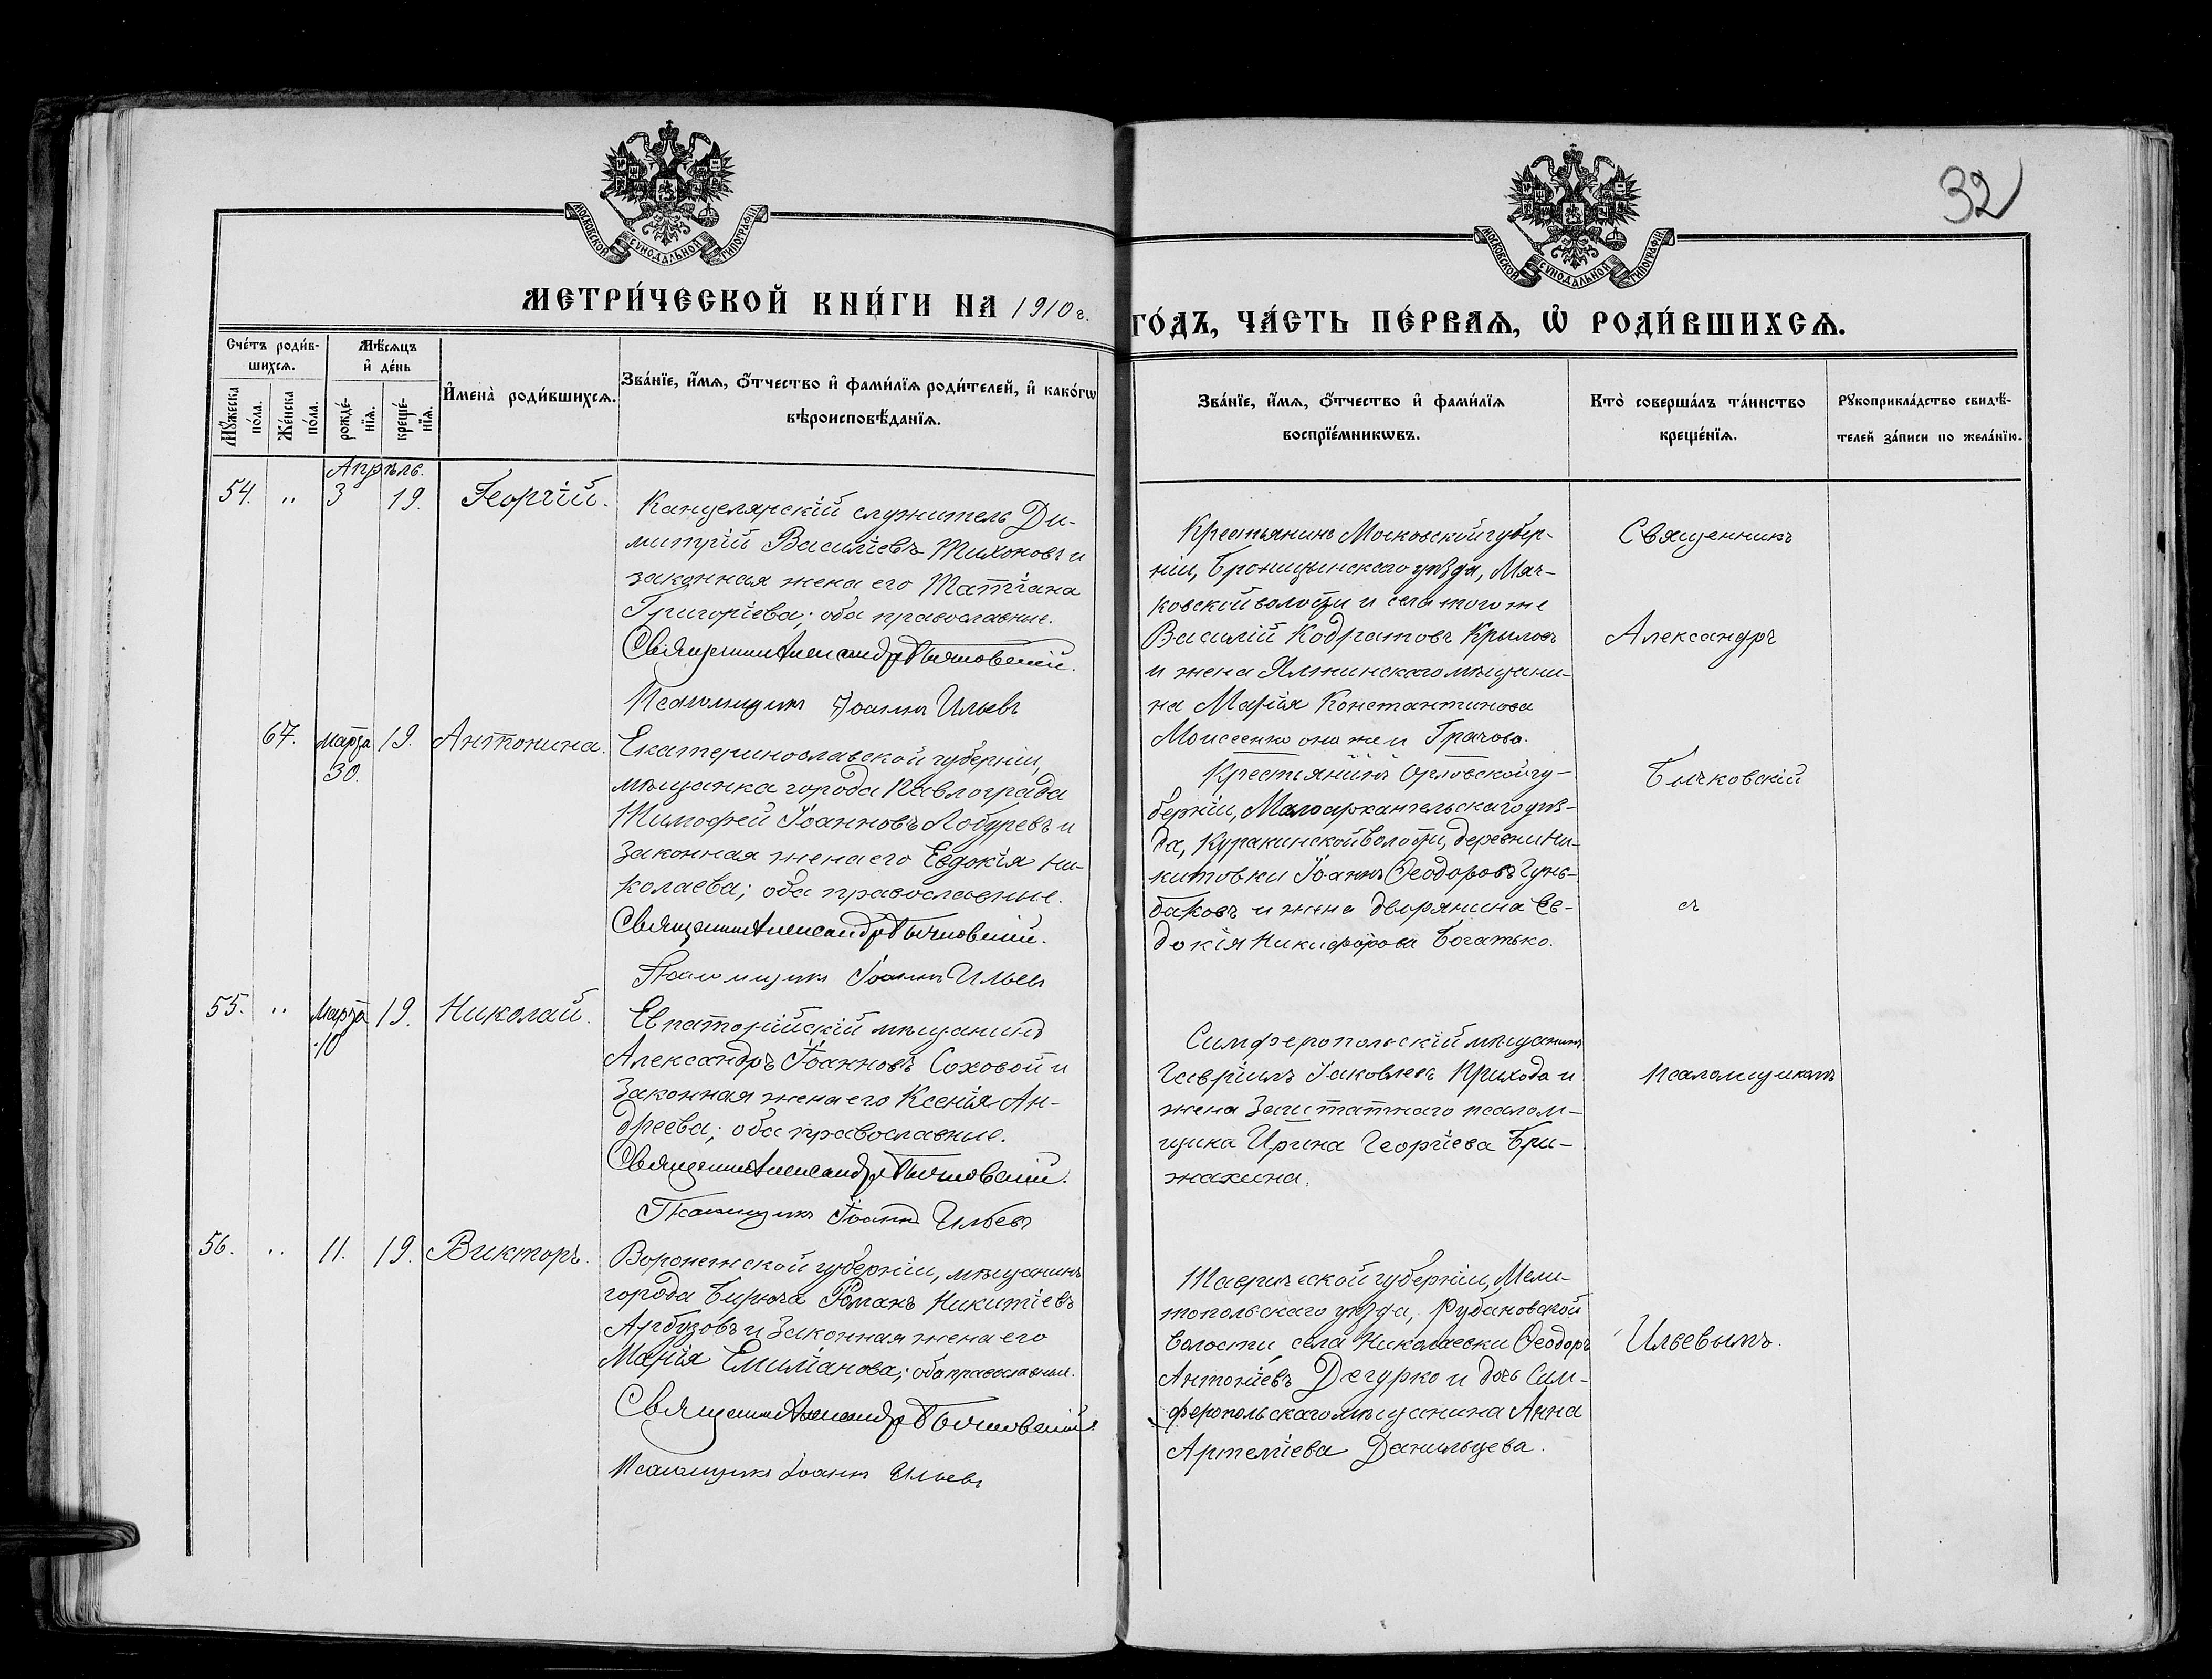 32
МОСКОВСКОЙ СѴНОДАЛЬНОЙ ТИПОГРАФІИ
МОСКОВСКОЙ СѴНОДАЛЬНОЙ ТИПОГРАФІИ
МЕТРИ́ЧЕСКОЙ КНИ́ГИ НА 1910 г.
ГО́ДЪ, ЧА́СТЬ ПЕ́РВАѦ, Ѡ҆ РОДИ́ВШИХСѦ.
Сче́тъ роди́в-
шихсѧ.
Мꙋ́жеска по́ла.
Же́нска по́ла.
Мѣ́сѧцъ
и҆ де́нь
рожде́-
нїѧ.
креще́-
нїѧ.
И҆мена̀ роди́вшихсѧ.
Зва́нїе, и҆́мѧ, ѻ҆́тчество и҆ фами́лїѧ роди́телей, и҆ како́гѡ
вѣроисповѣ́данїѧ.
Зва́нїе, и҆́мѧ, ѻ҆́тчество и҆ фами́лїѧ
воспрїе́мникѡвъ.
Кто̀ соверша́лъ та́инство
креще́нїѧ.
Рꙋкоприкла́дство свидѣ́-
телей за́писи по жела́нїю.
Апрѣль.
54. " 3 19. Георгій.
Канцелярскій служитель Ди-
митрій Василіевъ Тихоновъ и
законная жена его Татіана
Григоріева; оба православные.
Священникъ Александръ Бычковскій.
Псаломщикъ Іоаннъ Ильевъ
Крестьянинъ Московской губер-
ніи, Бронницынскаго уѣзда, Мяч-
ковской волости и села того же
Василій Кодратовъ Крыловъ
и жена Ялтинскаго мѣщани-
на Марія Константинова
Моисеенко она же и Грачова.
67. Марта 19. Антонина.
30.
Екатеринославской губерніи,
мѣщанка города Павлограда
Тимофей Іоанновъ Лобуревъ и
законная жена его Евдокія Ни-
колаева; оба православные.
Священникъ Александръ Бычковскій.
Псаломщикъ Іоаннъ Ильевъ
Крестьянинъ Орловской гу-
берніи, Малоархангельскаго уѣз-
да, Куракинской волости, деревни Ни-
китовки Іоаннъ Ѳеодоровъ Гунь-
баковъ и жена дворянина Ев-
докія Никифорова Богатько.
55. " Марта 19. Николай.
10
Евпаторійскій мѣщанинъ
Александръ Іоанновъ Соховой и
законная жена его Ксенія Ан-
дреева; оба православные.
Священникъ Александръ Бычковскій.
Псаломщикъ Іоаннъ Ильевъ
Симферопольскій мѣщанинъ
Гавріилъ Іаковлевъ Прихода и
жена заштатнаго псалом-
щика Ирина Георгіева Бри-
жахина.
56. " 11. 19. Викторъ.
Воронежской губерніи, мѣщанинъ
города Бирюча Романъ Никитіевъ
Арбузовъ и законная жена его
Марія Емиліанова; оба православные.
Священникъ Александръ Бычковскій.
Псаломщикъ Іоаннъ Ильевъ
Таврической губерніи, Мели-
топольскаго уѣзда, Рубановской
волости, села Николаевки Ѳеодоръ
Антоніевъ Дегурко и дочь Сим-
феропольскаго мѣщанина Анна
Артеміева Данильцева.
Священникъ
Александръ
Бычковскій
съ
псаломщикомъ
Ильевымъ.